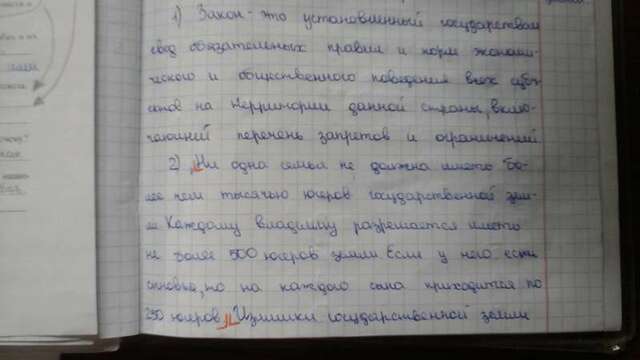 1) Закон - это установленный государством
свод обязательных правил и норм экономи-
ческого и общественного поведения всех субъ-
ектов на территории данной страны, вклю-
чающий перечень запретов и ограничений
2) „Ни одна семья не должна иметь бо-
лее чем тысячью югеров государственной зем-
ли Каждому владельцу разрешается иметь
не более 500 югеров земли Если у него есть
сыновья, то на каждого сына приходится по
250 югеров „Излишки государственной земли